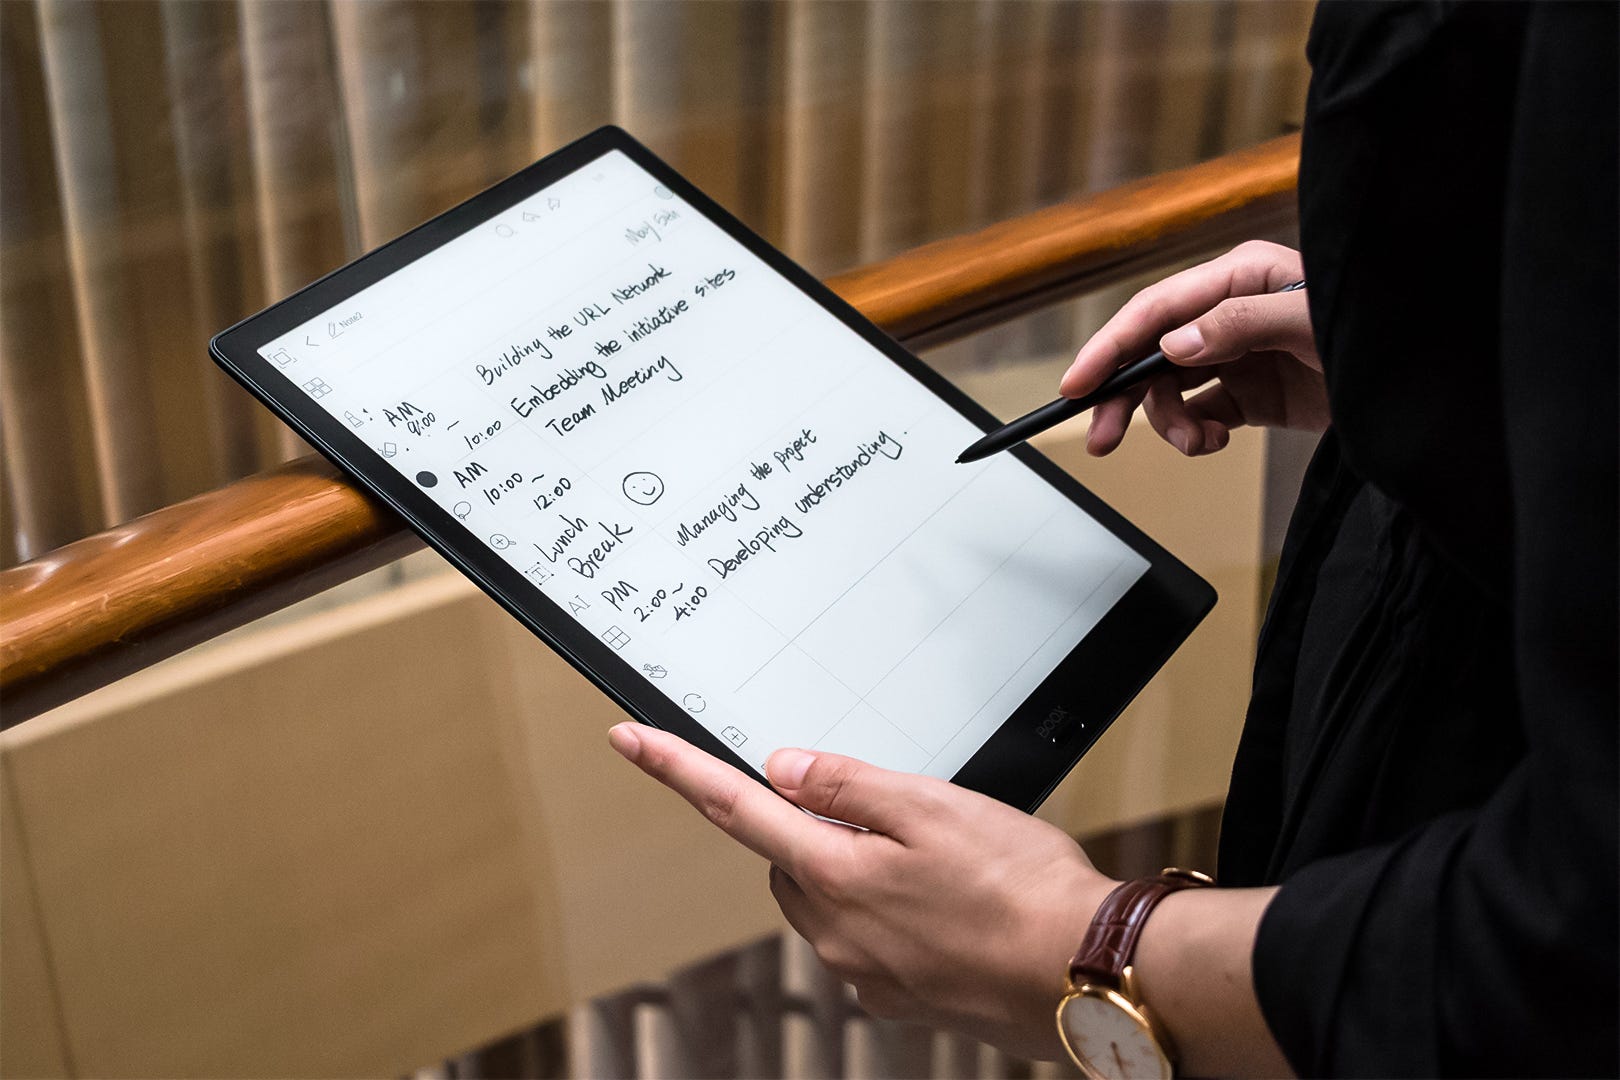 Note2
May 5th
AM
9:00 ~
10:00
Building the URL Network
Embedding the initiative sites
AM
10:00 ~
12:00
Team Meeting
Lunch
Break
PM
2:00 ~
4:00
Managing the project
Developing understanding.
AI
BOOX